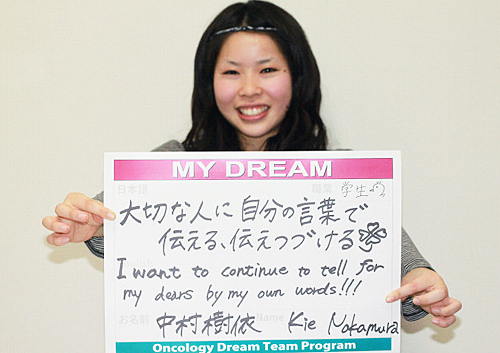 MY DREAM
日本語
職業 学生
大切な人に自分の言葉で
伝える、伝えつづける
I want to continue to tell for
my dears by my own words!!!
お名前 中村樹依 Name Kie Nakamura
Oncology Dream Team Program